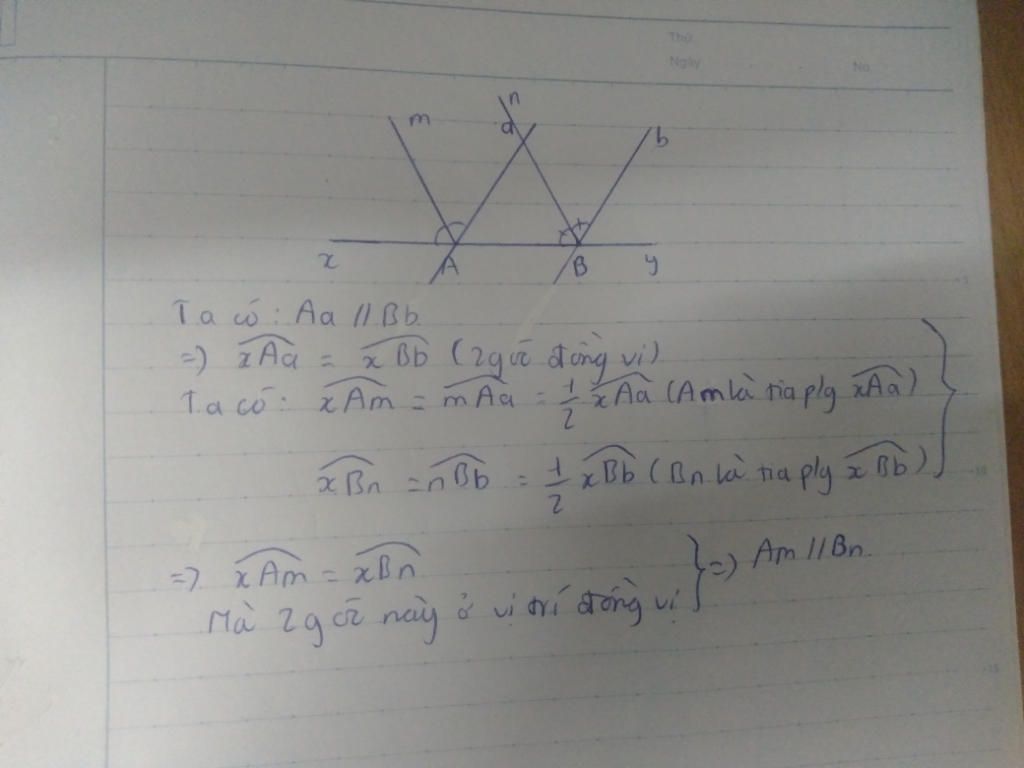 Thứ
Ngày No.
m n a b
x A B y
Ta có: Aa // Bb
=> xAa = xBb (2 góc đồng vị)
Ta có: xAm = mAa = 1/2 xAa (Am là tia p/g xAa)
xBn = nBb = 1/2 xBb (Bn là tia p/g xBb)
=> xAm = xBn
Mà 2 góc này ở vị trí đồng vị } => Am // Bn.